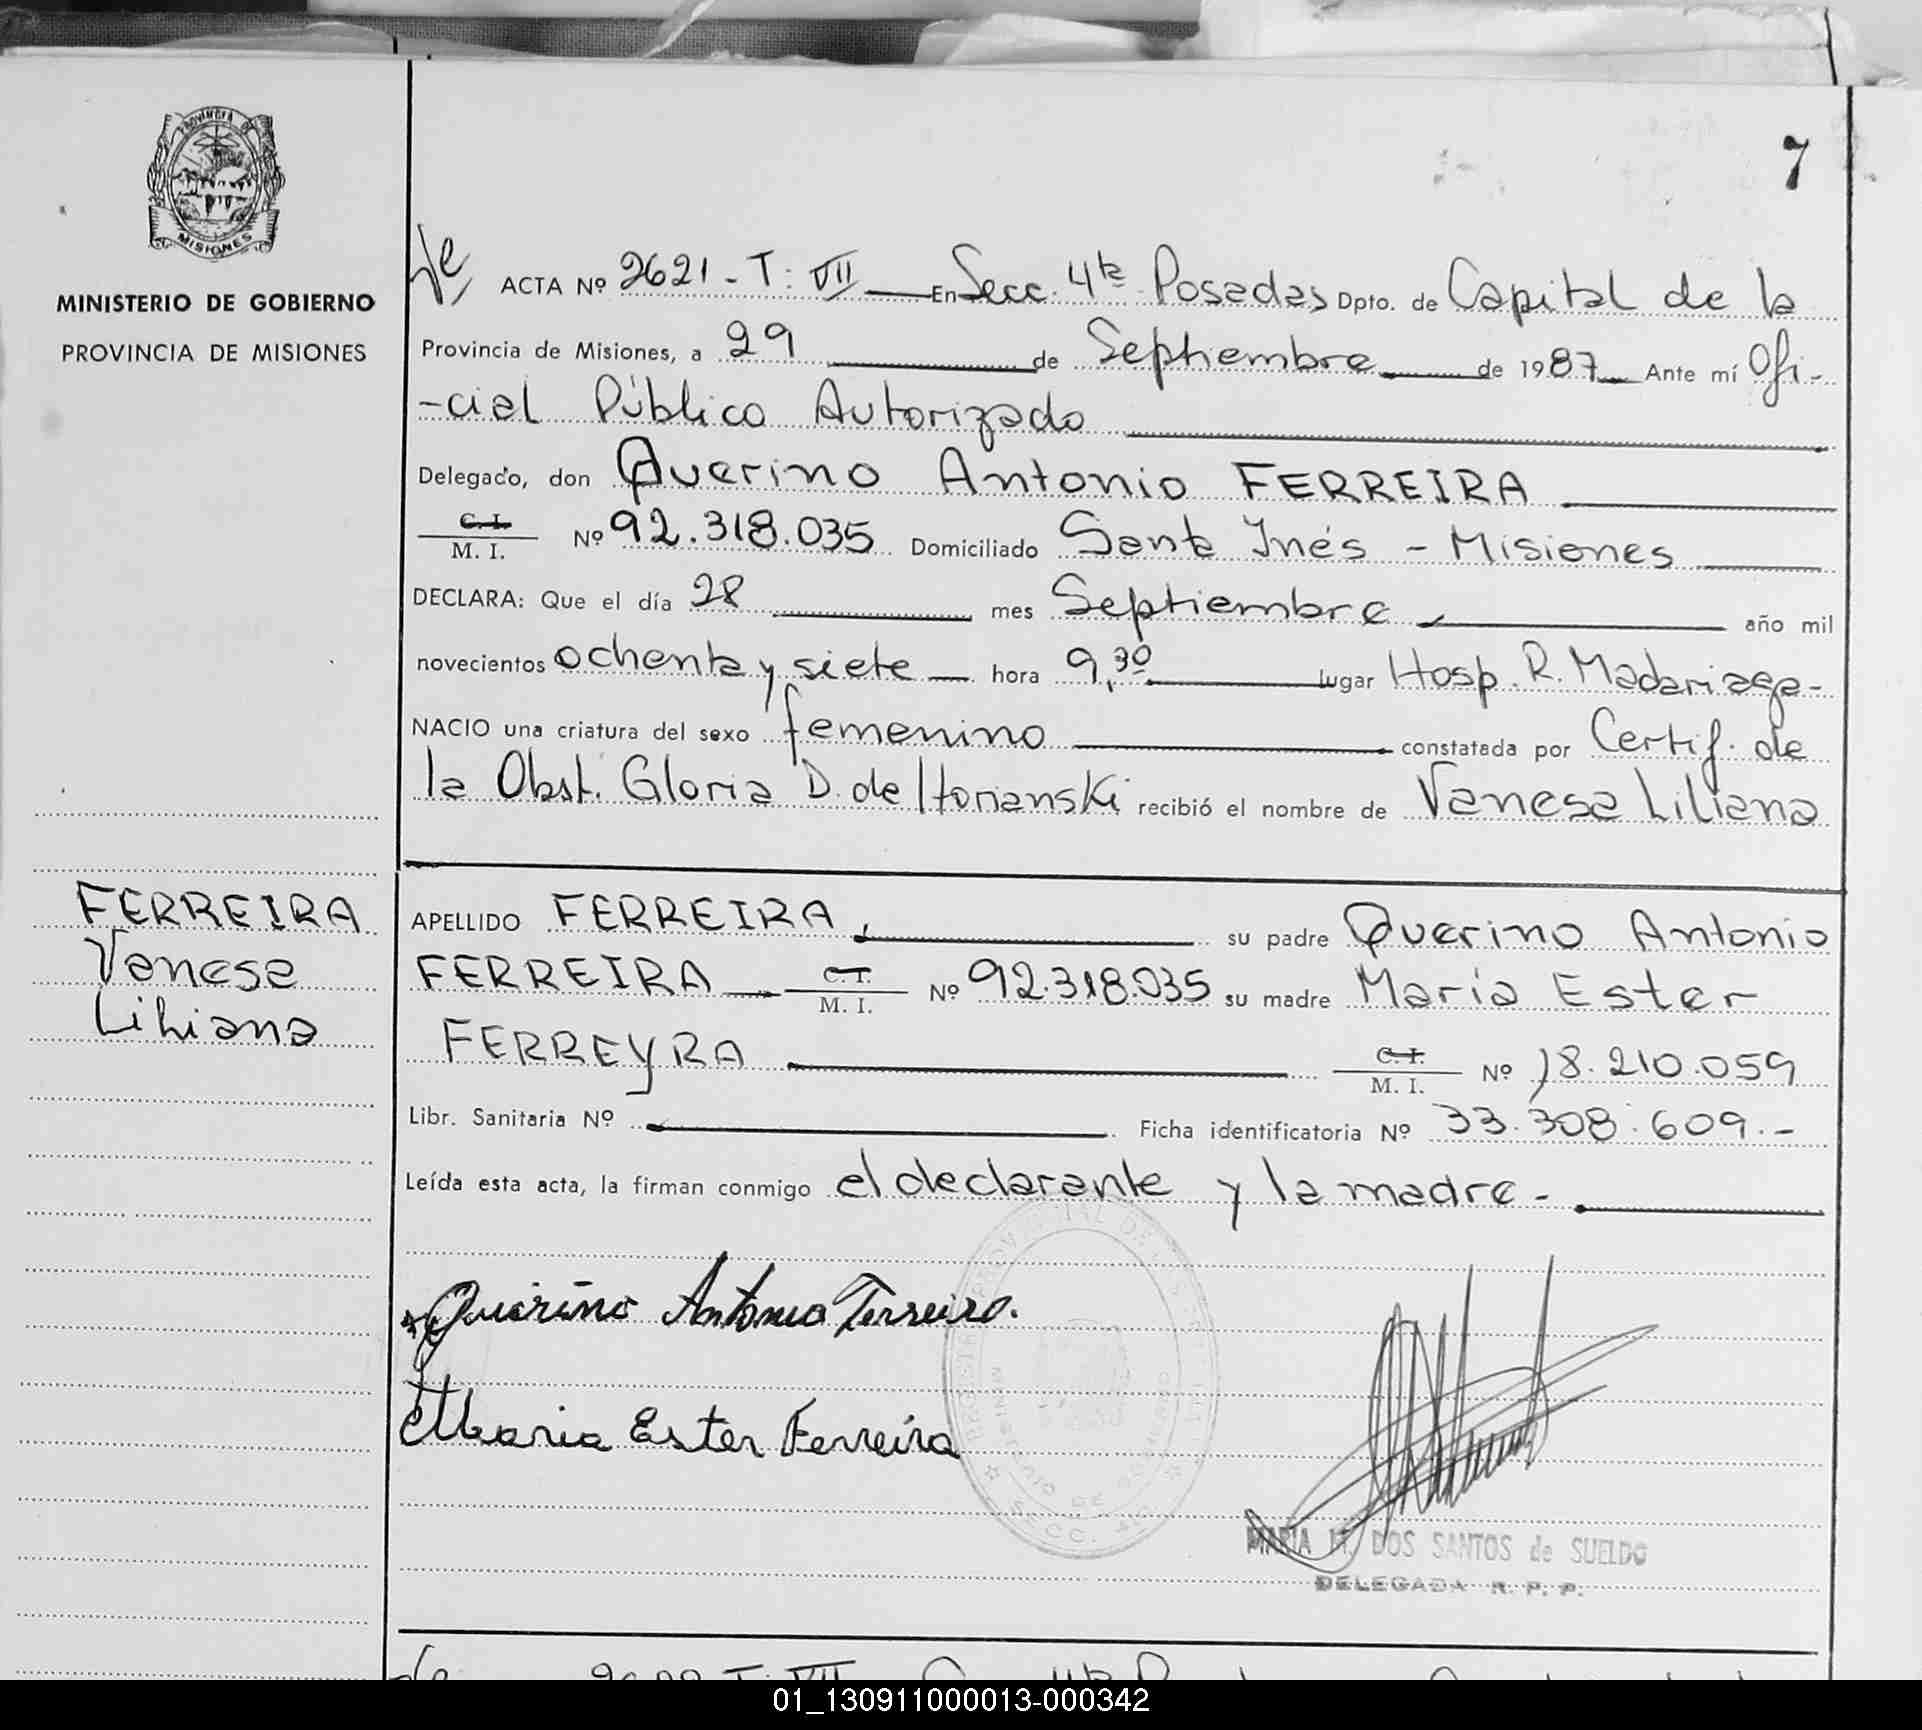 PROVINCIA DE
MISIONES
MINISTERIO DE GOBIERNO
PROVINCIA DE MISIONES
7
ACTA Nº 2621 - T: VII En Secc. 4ta Posadas Dpto. de Capital de la
Provincia de Misiones, a 29 de Septiembre de 1987 Ante mí Ofi-
-cial Público Autorizado
Delegado, don Querino Antonio FERREIRA
C. I.
M. I. Nº 92.318.035 Domiciliado Santa Inés - Misiones
DECLARA: Que el día 28 mes Septiembre año mil
novecientos ochenta y siete hora 9,30 lugar Hosp. R. Madariaga-
NACIO una criatura del sexo femenino constatada por Certif. de
la Obst. Gloria D. de Horianski recibió el nombre de Vanesa Liliana
FERREIRA
Vanesa
Liliana
APELLIDO FERREIRA, su padre Querino Antonio
FERREIRA C. I. M. I. Nº 92.318.035 su madre María Ester
FERREYRA C. I. M. I. Nº 18.210.059
Libr. Sanitaria Nº Ficha identificatoria Nº 33.308.609.-
Leída esta acta, la firman conmigo el declarante y la madre-
Querino Antonio Ferreira.
Maria Ester Ferreira
MARIA H. DOS SANTOS de SUELDO
DELEGADA R. P. P.
01_130911000013-000342